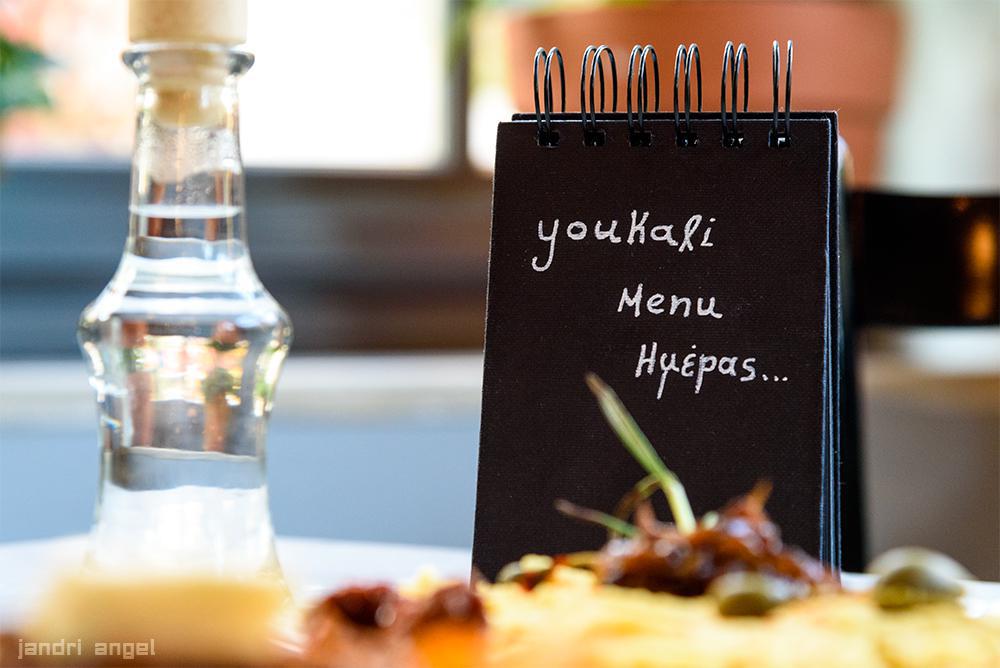 youkali
Menu
Ημέρας...
jandri angel